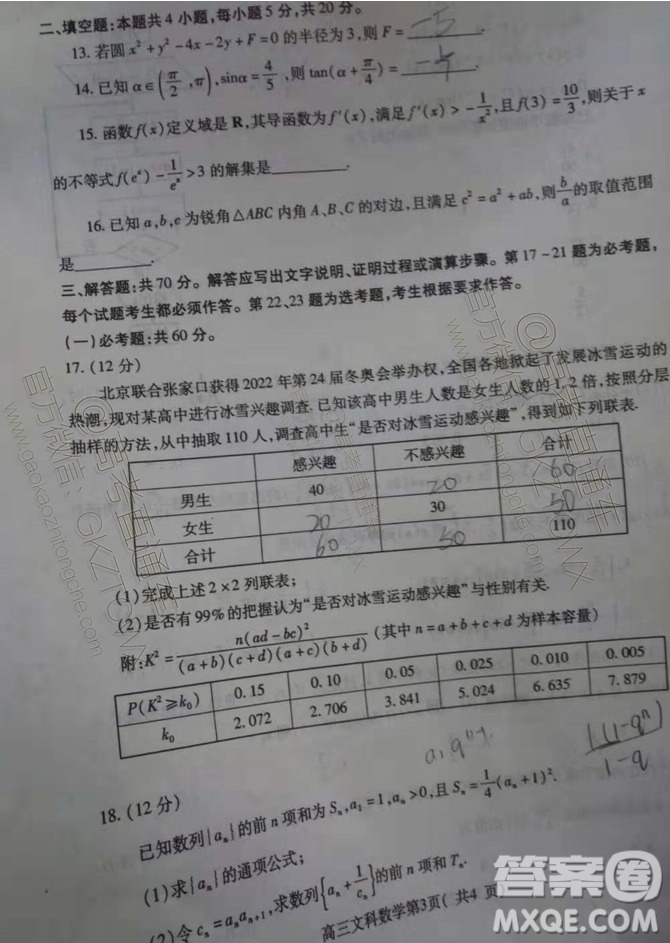 二、填空题:本题共4小题,每小题5分,共20分。
13. 若圆x²+y²-4x-2y+F=0的半径为3,则F=-5.
14. 已知α∈(π/2,π),sinα=4/5,则tan(α+π/4)=
15. 函数f(x)定义域是R,其导函数为f′(x),满足f′(x)>-1/x²,且f(3)=10/3,则关于x
的不等式f(eˣ)-1/eˣ>3的解集是________.
16. 已知a,b,c为锐角△ABC内角A、B、C的对边,且满足c²=a²+ab,则b/a的取值范围
是________.
三、解答题:共70分。解答应写出文字说明、证明过程或演算步骤。第17-21题为必考题,
每个试题考生都必须作答。第22、23题为选考题,考生根据要求作答。
(一)必考题:共60分。
17. (12分)
北京联合张家口获得2022年第24届冬奥会举办权,全国各地掀起了发展冰雪运动的
热潮,现对某高中进行冰雪兴趣调查.已知该高中男生人数是女生人数的1.2倍,按照分层
抽样的方法,从中抽取110人,调查高中生“是否对冰雪运动感兴趣”,得到如下列联表.
感兴趣 不感兴趣 合计
男生 40 20 60
女生 20 30 50
合计 60 50 110
(1)完成上述2×2列联表;
(2)是否有99%的把握认为“是否对冰雪运动感兴趣”与性别有关.
附:K²=n(ad-bc)²/(a+b)(c+d)(a+c)(b+d) (其中n=a+b+c+d为样本容量)
P(K²≥k₀) 0.15 0.10 0.05 0.025 0.010 0.005
k₀ 2.072 2.706 3.841 5.024 6.635 7.879
18. (12分)
已知数列{aₙ}的前n项和为Sₙ,a₁=1,aₙ>0,且Sₙ=1/4(aₙ+1)².
(1)求{aₙ}的通项公式;
(2)令cₙ=aₙaₙ₊₁,求数列{aₙ+1/cₙ}的前n项和Tₙ.
高三文科数学第3页(共4页)
答案圈
MXQE.COM